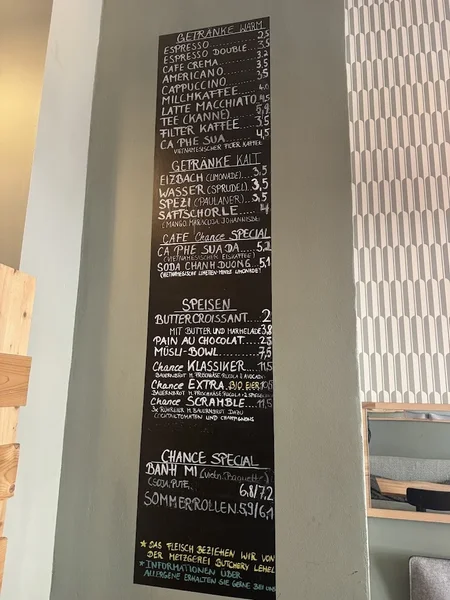 GETRÄNKE WARM
ESPRESSO..... 2,5
ESPRESSO DOUBLE... 3,5
CAFE CREMA..... 3,2
AMERICANO...... 3,5
CAPPUCCINO.....
MILCHKAFFEE.... 4,0
LATTE MACCHIATO 4,5
TEE (KANNE).... 5,9
FILTER KAFFEE.. 3,5
CA PHE SUA..... 4,5
VIETNAMESISCHER FILTER KAFFEE
GETRÄNKE KALT
EIZBACH (LIMONADE).. 3,5
WASSER (SPRUDEL) 3,5
SPEZI (PAULANER) 3,5
SAFTSCHORLE..... 4
(MANGO MARACUJA JOHANNISB.
CAFE Chance SPECIAL
CA PHE SUA DA.... 5,2
(VIETNAMESISCHEN EISKAFFEE)
SODA CHANH DUONG.. 5,1
(VIETNAMESISCHE LIMETTEN-MINZE LIMONADE)
SPEISEN
BUTTERCROISSANT.... 2
MIT BUTTER UND MARMELADE 3,8
PAIN AU CHOCOLAT.. 2,5
MÜSLI-BOWL....... 7,5
Chance KLASSIKER.... 11,5
BAUERNBROT M. FRISCHKÄSE RUCOLA & AVOCADO
Chance EXTRA (BIO EIER) 10,5
BAUERNBROT M. FRISCHKÄSE RUCOLA
Chance SCRAMBLE... 11,5
3x RÜHREIER M. BAUERNBROT DAZU
COCKTAILTOMATEN UND CHAMPIGNONS
CHANCE SPECIAL
BANH MI (vietn. Baguette)
(SOJA, PUTE, 6,8/7,2
SOMMERROLLEN 5,9/6,1
* DAS FLEISCH BEZIEHEN WIR VON
DER METZGEREI BUTCHERY LEHEL
* INFORMATIONEN ÜBER
ALLERGENE ERHALTEN SIE GERNE BEI UNS